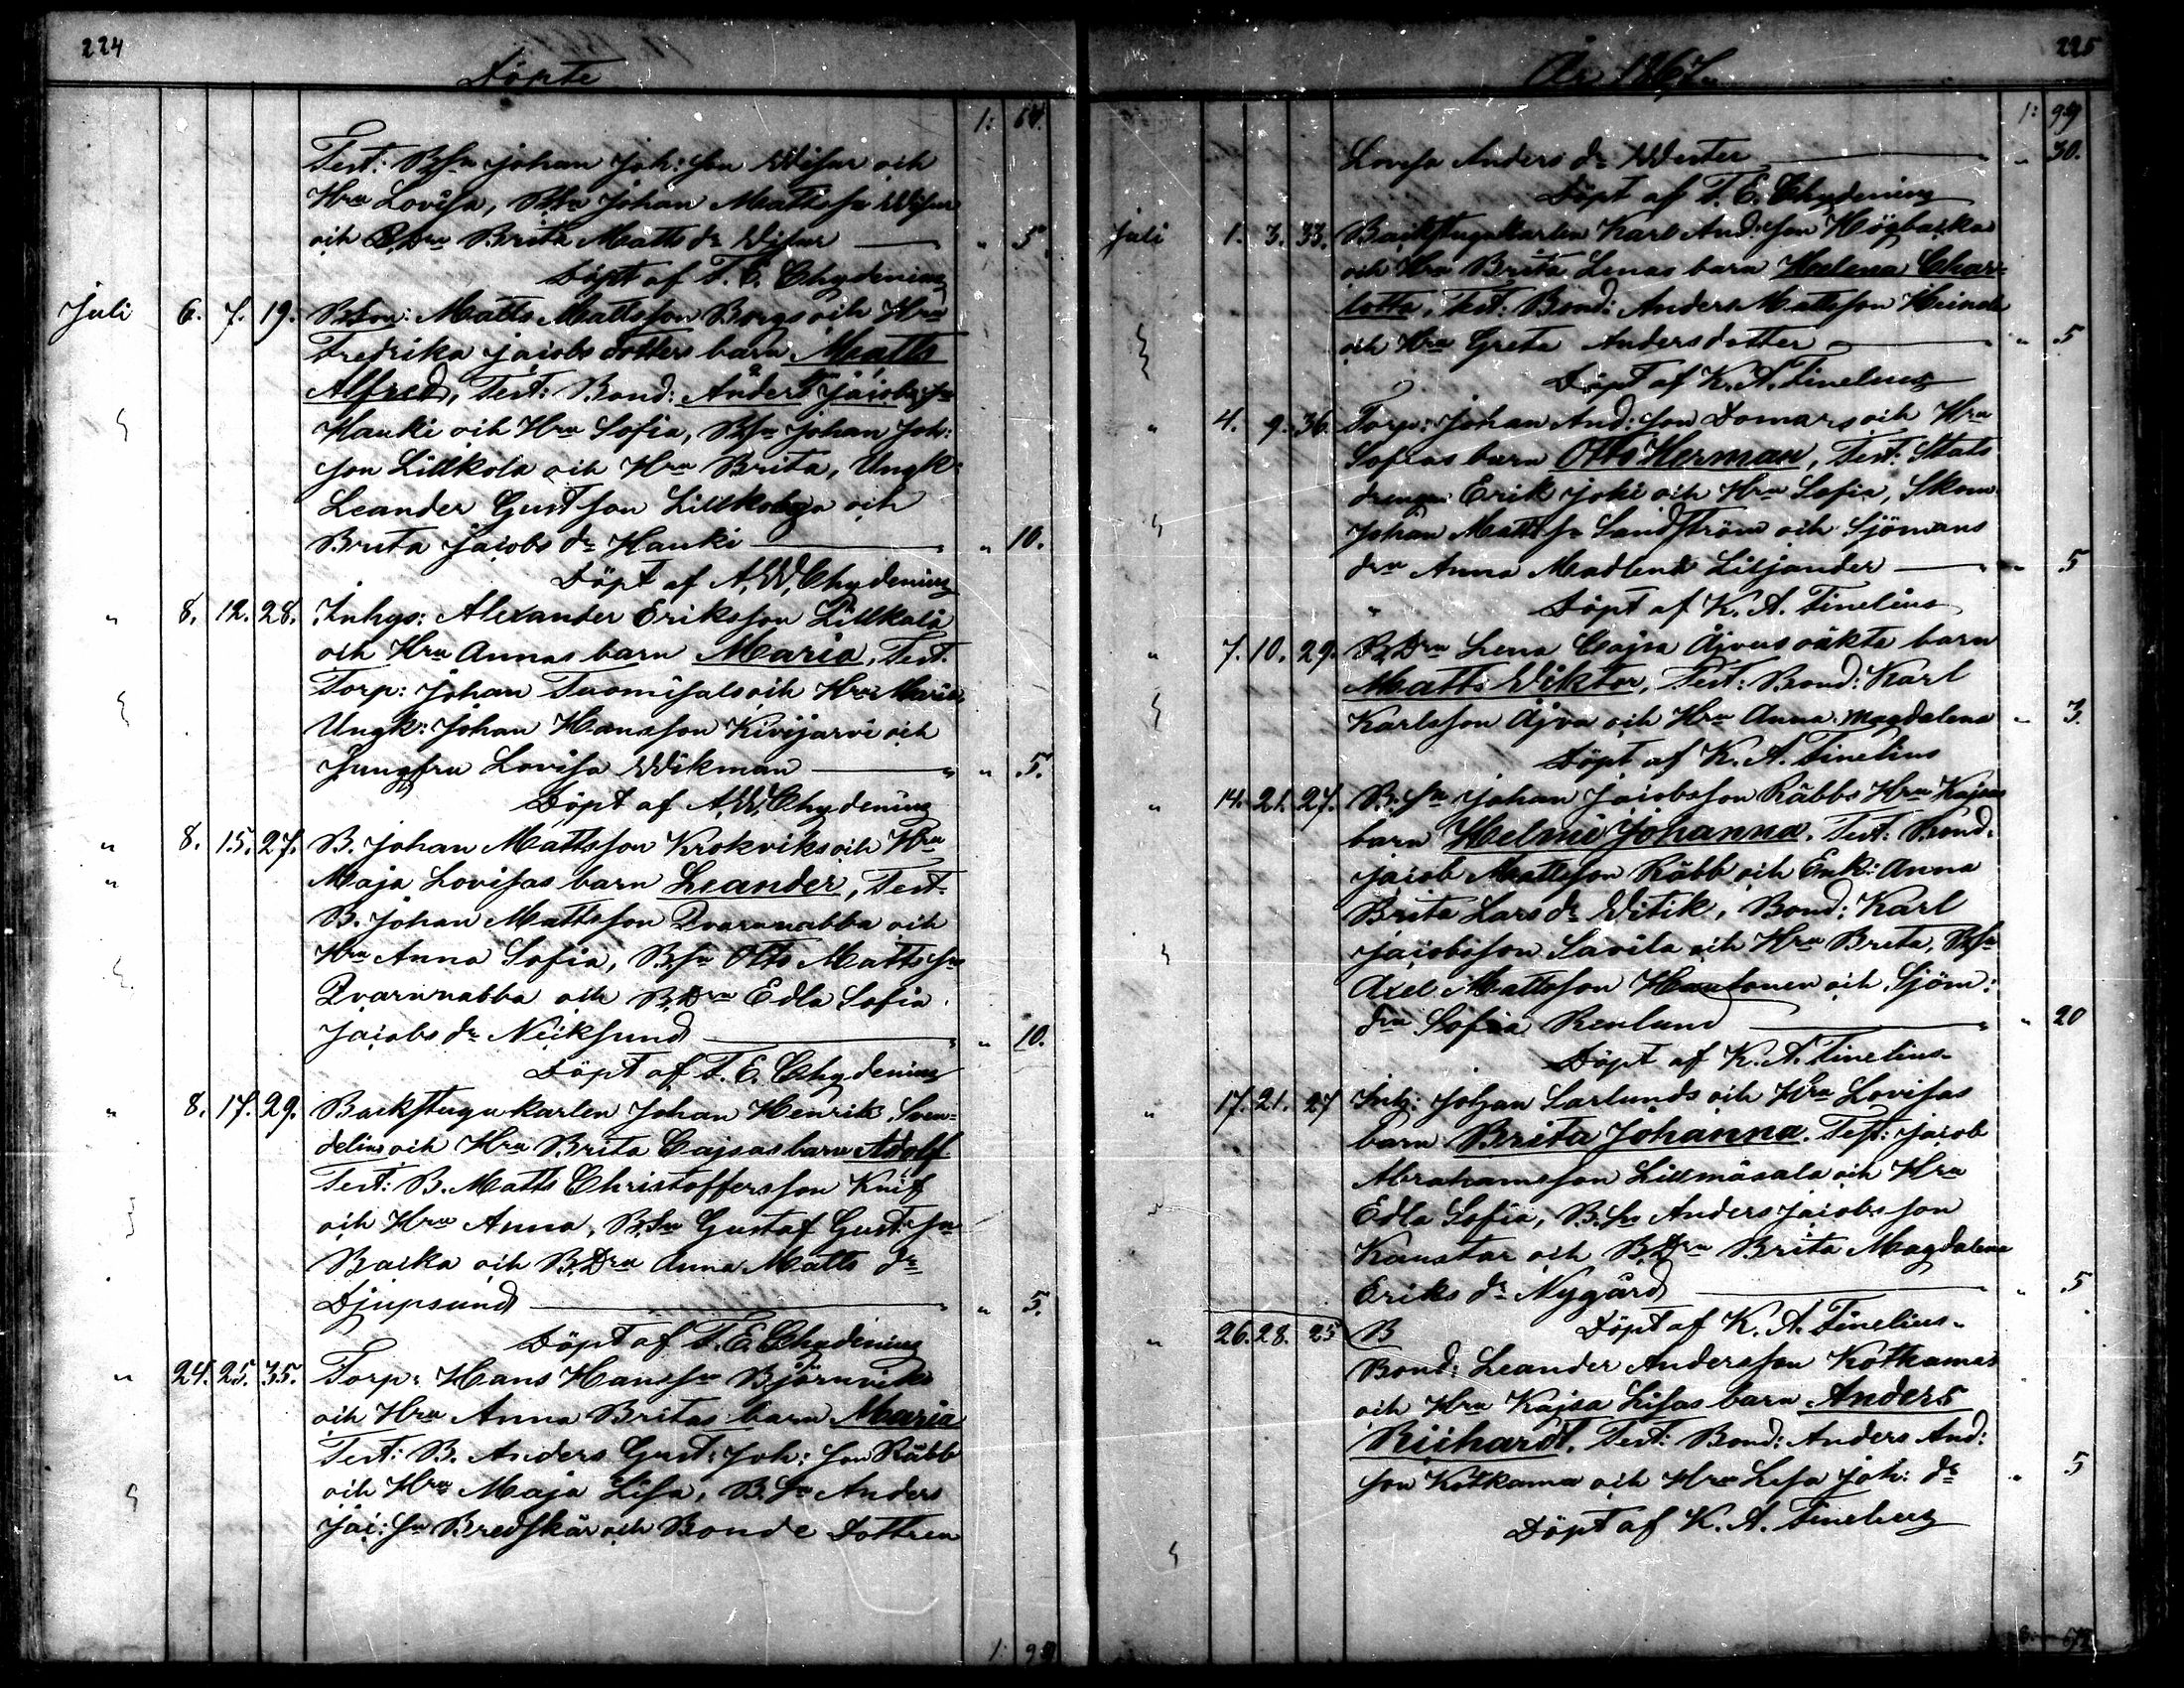 224
Döpte
1: 64.
Test: B.Sn Johan Joh: son Wisur och
Hru Lovisa, B.Sn Johan Mattsson Wisur
och B.Drn Brita Matts dr Wisur — " 5.
Döpt af T. E. Chydenius
Juli 6. 7. 19. B.Son: Matts Mattsson Borgs och Hru
Fredrika Jacobs dotters barn Matts
Alfred, Test: Bond: Anders Jacobs sn
Hauki och Hru Sofia, B.Sn Johan Joh:
son Lillkola och Hru Brita, Ungk:
Leander Gust son Lillkola och
Brita Jacobs dr Hauki — " 10.
Döpt af A. W. Chydenius
" 8. 12. 28. Inhys: Alexander Eriksson Lillkala
och Hru Annas barn Maria, Test.
Torp: Johan Tuomisalo och Hru Maria,
Ungk: Johan Hansson Kivijarvi och
Jungfru Lovisa Wikman — " 5.
Döpt af A. W. Chydenius
" 8. 15. 27. B. Johan Mattsson Krokviks och Hru
" Maja Lovisas barn Leander, Test.
B. Johan Mattsson Qvarnnabba och
Hru Anna Sofia, B.Sn Otto Matts sn
Qvarnnabba och B.Drn Edla Sofia
Jacobs dr Neiksund — " 10.
Döpt af T. E. Chydenius
" 8. 17. 29. Backstugu karlen Johan Henrik Sven=
delins och Hru Brita Cajsas barn Adolf.
Test: B. Matts Christoffersson Knif
och Hru Anna, B.Sn Gustaf Gust: sn
Backa och B.Drn Anna Matts dr
Djupsund — " 5.
Döpt af T. E. Chydenius
" 24. 25. 35. Torp: Hans Hanssn Björnviks
och Hru Anna Britas barn Maria
Test: B. Anders Gust: Joh: son Räbb
och Hru Maja Lisa, B. Sn Anders
Jac: Sn Bredskär och Bonde Dottren
1. 99
225
År 1867.
1: 99
Lovisa Anders dr Wester — " 30.
Döpt af T. E. Chydenius
Juli 1. 3. 33. Backstugukarlen Karl And: son Högbacka
och Hru Brita Lenas barn Helena Char=
lotta, Test: Bond: Anders Mattsson Heinde
och Hru Greta Andersdotter — " 5
Döpt af K. A. Finelius
" 4. 9. 36. Torp: Johan And: son Domars och Hru
Sofias barn Otto Herman, Test: Stats
drengen Erik Joki och Hru Sofia, Skom
Johan Matts sn Sandström och Sjömans
drn Anna Madlena Liljander — " 5
" Döpt af K. A. Finelius
" 7. 10. 29. B.Drn Lena Cajsa Ajvus oäkta barn
Matts Wiktor, Test: Bond: Karl
Karlsson Ajva och Hru Anna Magdalena " 3.
Döpt af K. A. Finelius
" 14. 21. 27. B. Sn Johan Jacobsson Räbbs Hru Kajsas
barn Helmi Johanna. Test: Bond.
Jacob Mattsson Räbb och Enk: Anna
Brita Lars dr Witik, Bond: Karl
Jacobsson Savila och Hru Brita, B.Sn
Axel Mattsson Hautonen och Sjöm:
drn Sofia Renlund — " 20
Döpt af K. A. Finelius
" 17. 21. 27 Inh: Johan Sarlunds och Hru Lovisas
barn Brita Johanna. Test: Jacob
Abrahamsson Lillmåsala och Hru
Edla Sofia, B. Sn Anders Jacobsson
Kanstar och B.Drn Brita Magdalena
Eriks dr Nygård — " 5
Döpt af K. A. Finelius
" 26. 28. 25 B
Bond: Leander Andersson Kotkamas
och Hru Kajsa Lisas barn Anders
Richard. Test: Bond: Anders And:
son Kotkama och Hru Lisa Joh: dr " 5
Döpt af K. A. Finelius